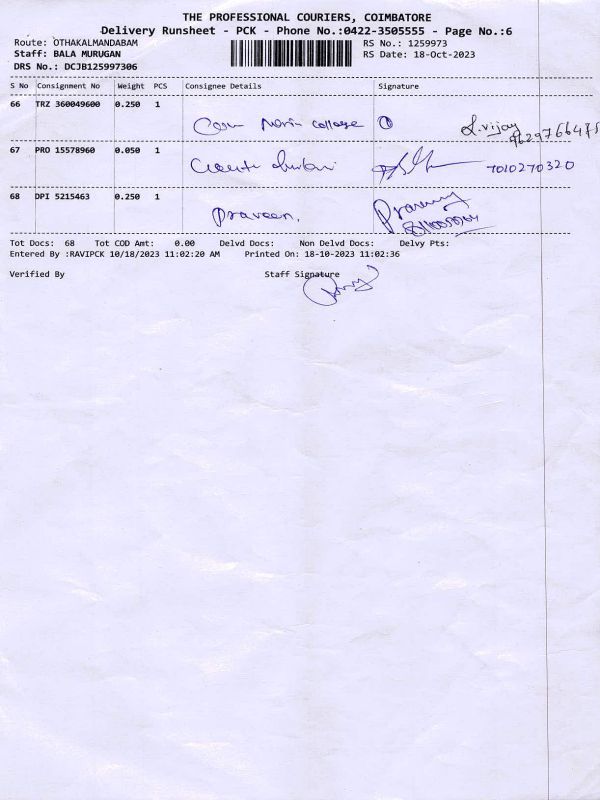 THE PROFESSIONAL COURIERS, COIMBATORE
Delivery Runsheet - PCK - Phone No.:0422-3505555 - Page No.:6
Route: OTHAKALMANDABAM RS No.: 1259973
Staff: BALA MURUGAN RS Date: 18-Oct-2023
DRS No.: DCJB125997306
S No Consignment No Weight PCS Consignee Details Signature
66 TRZ 360049600 0.250 1
college
vijay
67 PRO 15578960 0.050 1
7010270320
68 DPI 5215463 0.250 1
Praveen.
Tot Docs: 68 Tot COD Amt: 0.00 Delvd Docs: Non Delvd Docs: Delvy Pts:
Entered By :RAVIPCK 10/18/2023 11:02:20 AM Printed On: 18-10-2023 11:02:36
Verified By Staff Signature